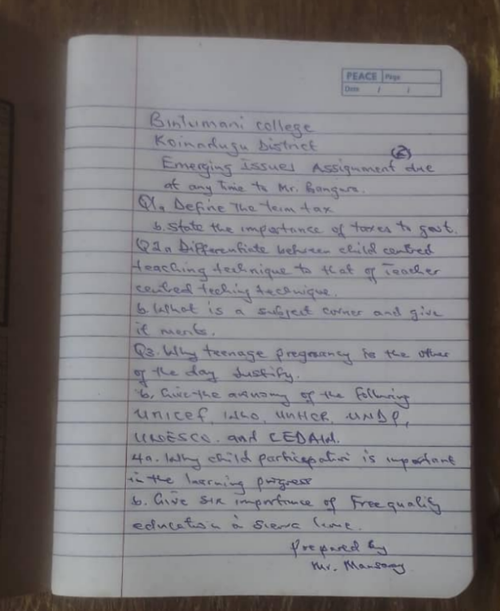 PEACE Page
Date / /
Bintumani college
Koinadugu District
Emerging Issues Assignment (2) due
at any time to Mr. Bangura.
Q1a Define the term tax
b. State the importance of taxes to govt.
Q2a Differentiate between child centred
teaching technique to that of Teacher
centred teching technique.
b. What is a subject corner and give
it merits.
Q3. Why teenage pregnancy is the other
of the day Justify.
b. Give the acronomy of the following
UNICEF, WHO, UNHCR, UNDP,
UNESCO. and CEDAW.
4a. Why child participation is important
in the learning progress
b. Give six importance of Free quality
education in Sierra Leone.
Prepared by
Mr. Mansaray